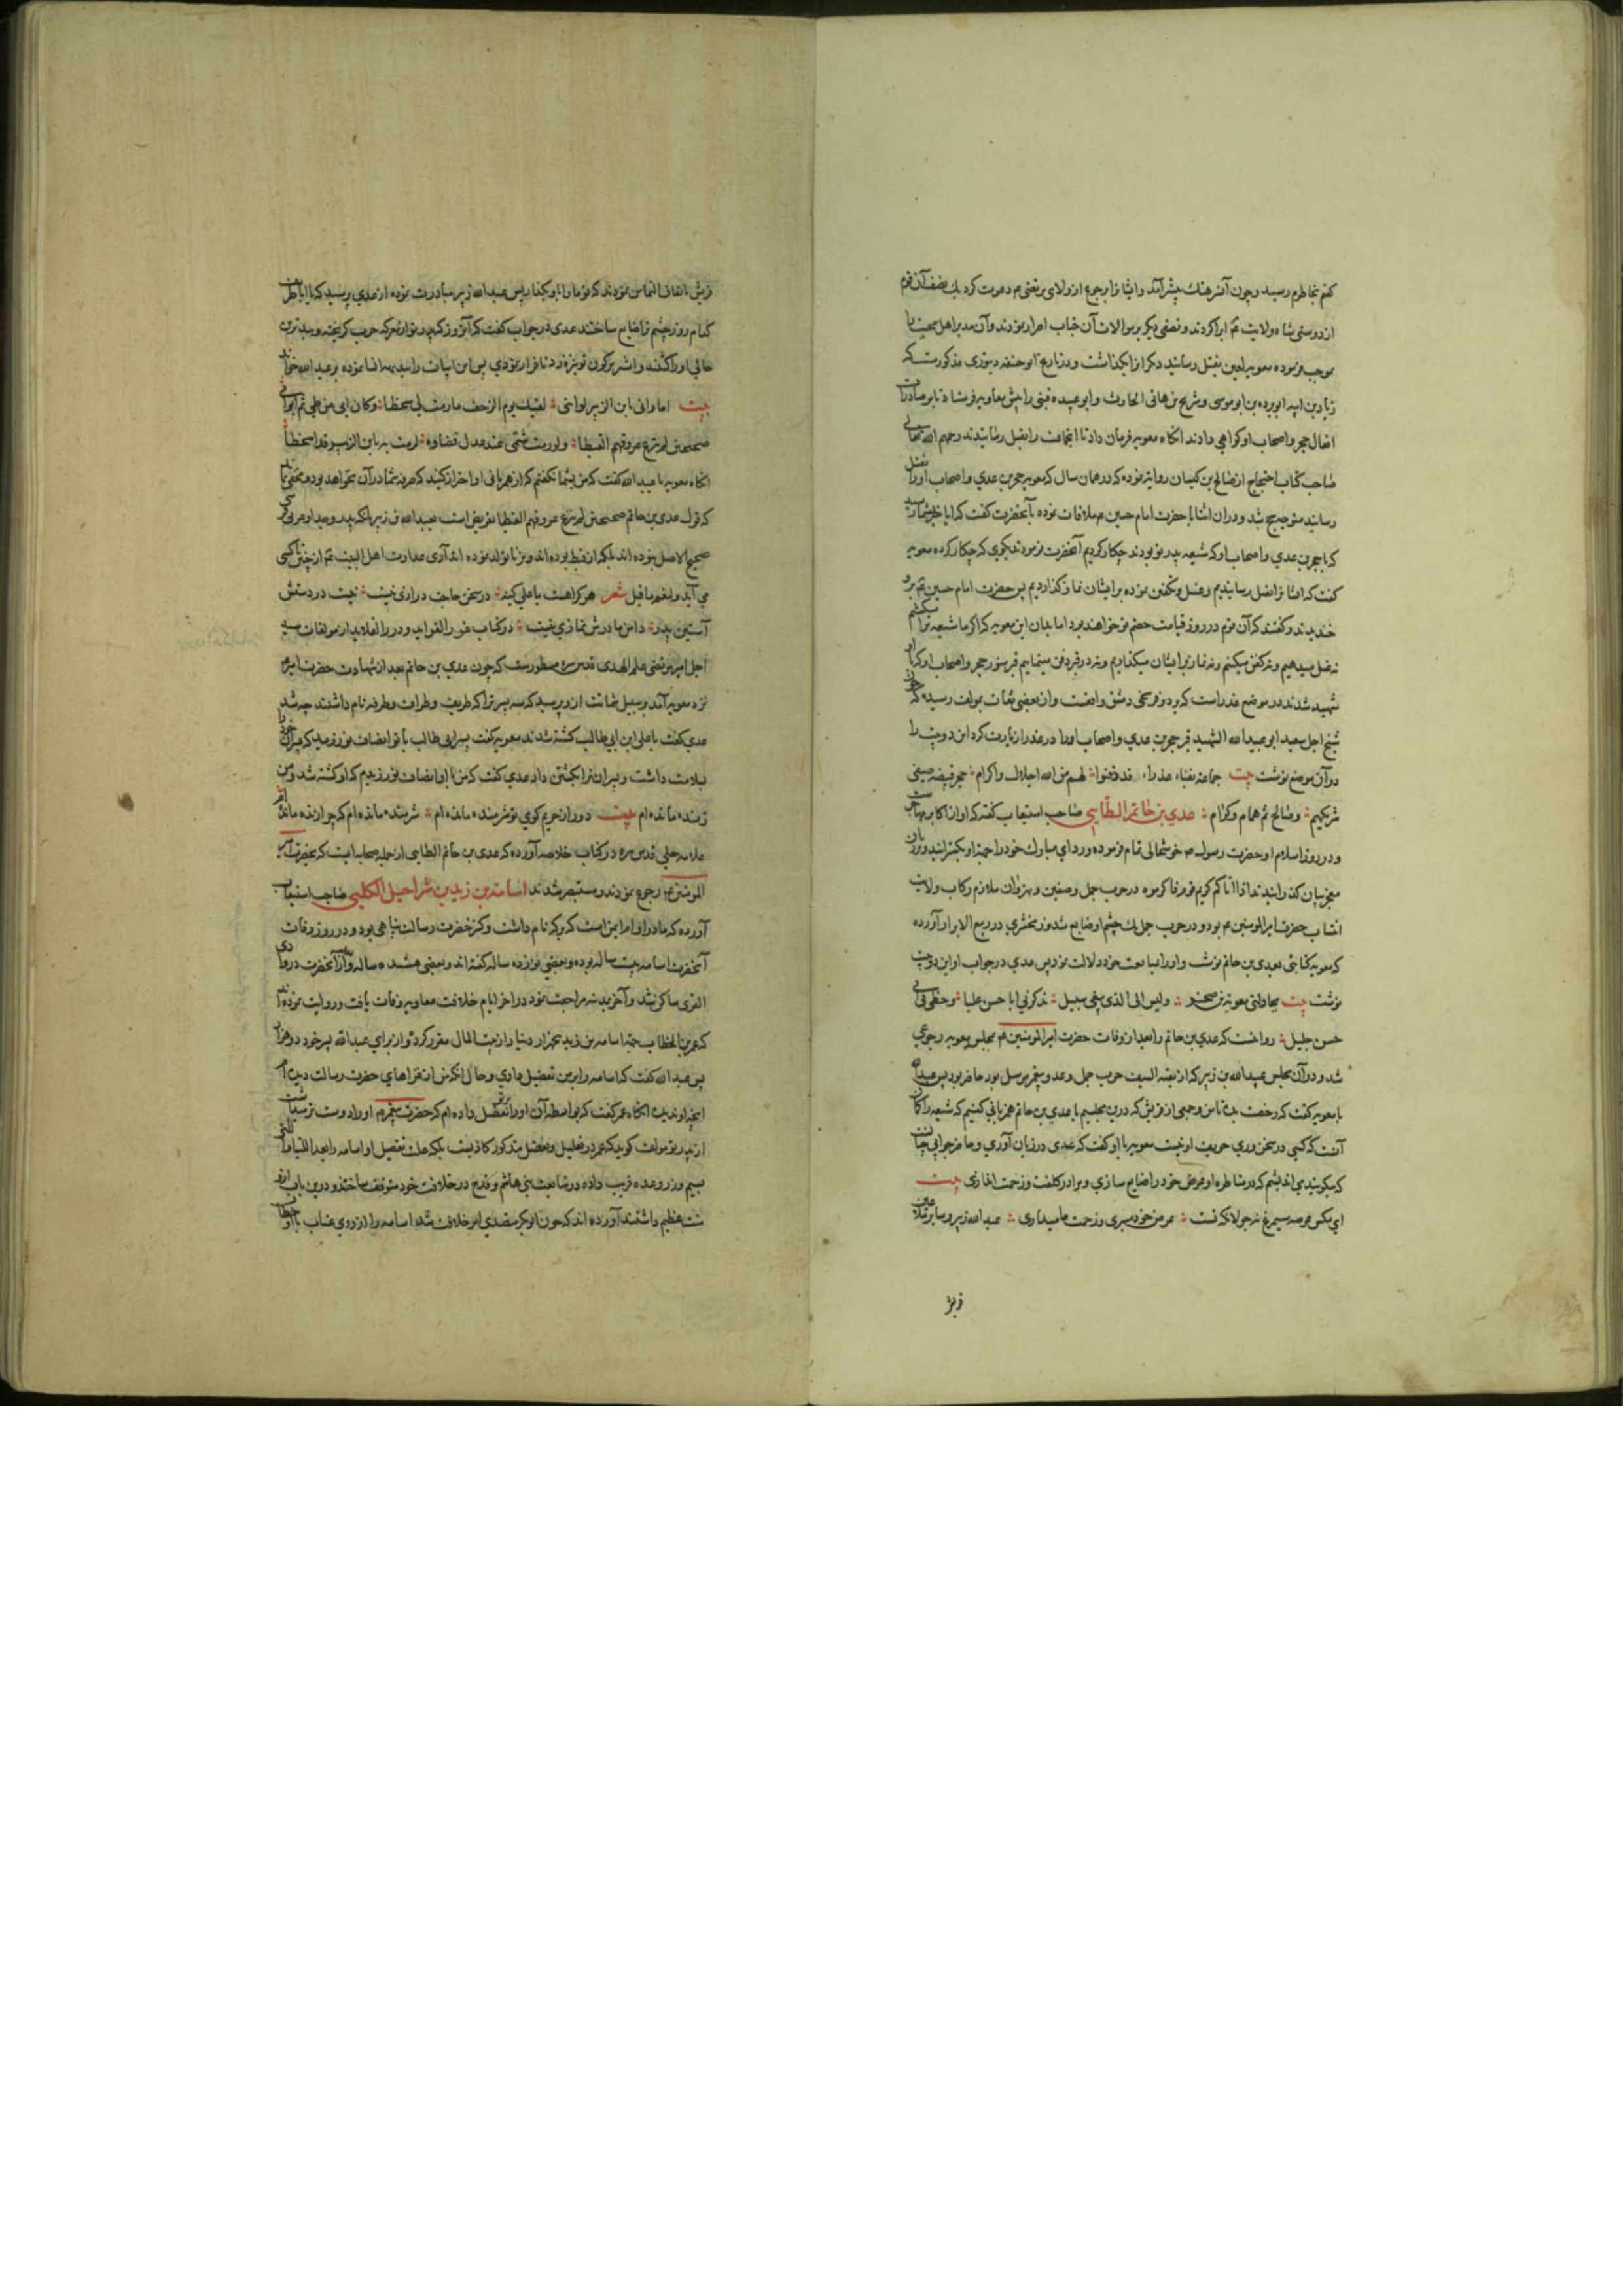 کنم بخاطرم رسید و چون آن سرهنگ پیش آمد و ایشانرا برجوع از ولای مرتضی ع م دعوت کرد یک نصف آن قوم
از دوستی شاه ولایت ع م ابرا کردند و نصفی دیگر بر موالات آن جناب اصرار نمودند و آن مدبر اهل محبت را
بموجب فرموده معویه لعین بقتل رسانید و دیگرانرا بگذاشت و در تاریخ ابو حنیفه دینوری مذکورست که
زیاد بن ابیه ابو برده بن ابو موسی و شریح بن هانی الحارث و ابو عبیده قینی را پیش معاویه فرستاد تا بر صادرات
افعال حجر و اصحاب او گواهی دادند آنگاه معویه فرمان داد تا آن جماعت را بقتل رسانیدند رحمهم الله تعالی
صاحب کتاب احتجاج از صالح بن کیسان روایة نموده که در همان سال که معویه حجر بن عدی و اصحاب او را بقتل
رسانید متوجه حج شد و در آن اثنا با حضرت امام حسین ع م ملاقات نموده بآنحضرت گفت که ایا خبر بشما رسید
که با حجر بن عدی و اصحاب او که شیعه پدر تو بودند چکار کردیم آنحضرت فرمودند بگوی که چکار کرده معویه
گفت که ایشانرا بقتل رسانیدیم و غسل و تکفین نموده بر ایشان نماز گذاردیم پس حضرت امام حسین ع م برو
خندیدند و گفتند که آن قوم در روز قیامت خصم تو خواهند بود اما بدان ای معویه که اگر ما شیعه ترا میکشیم
نه غسل میدهیم و نه کفن میکنیم و نه نماز بر ایشان میگذاریم و نه در قبر دفن مینماییم قبر منور حجر و اصحاب او که با او
شهید شدند در موضع عذراست که بر دو فرسخی دمشق واقعست و از بعضی ثقات بمولف رسیده که چون
شیخ اجل سعید ابو عبد الله الشهید قبر حجر بن عدی و اصحاب او را در عذرا زیارت کرد این دو بیت را
در آن موضع نوشت بیت جماعة بفناء عذراء قد دفنوا لهم من الله اجلال و اکرام حجر قبیصه صیفی
شریکهم و صالح ثم همام و کرام عدی بن حاتم الطایی صاحب استیعاب گفته که او از اکابر مهاجرست
و در روز اسلام او حضرت رسول ص خوشحالی تمام فرموده و ردای مبارک خود را جهة او بگسترانید و بر زبان
معجز بیان گذرانیدند اذا اتاکم کریم قوم فاکرموه در حرب جمل و صفین و نهروان ملازم رکاب ولایت
انتساب حضرت امیر المومنین ع م بود و در حرب جمل یک چشم او ضایع شد و زمخشری در ربیع الابرار آورده
که معویه کتابتی بعدی بن حاتم نوشت و او را بمبایعت خود دلالت نمود پس عدی در جواب او این دو بیت
نوشت بیت یحاولنی معویة بن صخر و لیس الی الذی یبغی سبیل یذکرنی ابا حسن علیا و حظی فی ابی
حسن جلیل رواتست که عدی بن حاتم را بعد از وفات حضرت امیر المومنین ع م بمجلس معویه رجوعی
شد و در آن مجلس عبد الله بن زبیر که از بقیة السیف حرب جمل و عدو پیغمبر مرسل بود حاضر بود پس عبد الله
با معویه گفت که رخصت بده تا من و جمعی از قریش که درین مجلسیم با عدی بن حاتم همزبانی کنیم که شیعه را گمان
آنست که کسی در سخنوری حریف او نیست معویه با او گفت که عدی در زبان آوری و حاضر جوابی چنانست
که میگویند می اندیشم که در مناظره او عرض خود را ضایع سازی و مرا در کلفت و زحمت اندازی بیت
ای مگس عرصه سیمرغ نه جولانگه تست عرض خود میبری و زحمت ما میداری عبد الله زبیر و سایر ملاعین
قریش
قریش باتفاق التماس نمودند که تو ما را با او بگذار پس عبد الله زبیر مبادرت نموده از عدی پرسید که یا ابا طریف
کدام روز چشم ترا ضایع ساختند عدی در جواب گفت که آن روز که پدر تو از معرکه حرب گریخته و ببدترین
حالی او را کشتند و اشتر بر کون تو نیزه زد تا فرار نمودی پس این ابیات را بدیهه انشا نموده بر عبد الله خواند
بیت اما و ابی یا ابن الزبیر لو اننی لقیتک یوم الزحف ما رمت لی سخطا و کان ابی من طی ثم ابو ابی
صحیحین لم ینزع عروقهم القبطا و لو رمت شتمی عند عدل قضاوه لرمت به یا ابن الزبیر قدا سخطا
آنگاه معویه با عبد الله گفت که من بشما نگفتم که از همزبانی او احتراز کنید که صرفه شما در آن نخواهد بود و مخفی نماند
که قول عدی بن حاتم صحیحین لم ینزع عروقهم القبطا تعریض است بعبد الله بن زبیر بانکه پدر و جد او عربی
صحیح الاصل نبوده اند بلکه از قبط بوده اند و بزنا تولد نموده اند آری عداوت اهل البیت ع م از چنین ناکسی
می آید و لنعم ما قیل شعر هر کرا هست با علی کینه در سخن حاجت درازی نیست نیست در دستش
آستین پدر دامن مادرش نمازی نیست در کتاب غرر الفواید و درر القلاید از مولفات سید
اجل امیر مرتضی علم الهدی قدس سره مسطورست که چون عدی بن حاتم بعد از شهادت حضرت امیر ع م
نزد معویه آمد بر سبیل شماتت ازو پرسید که سه پسر ترا که طریف و طراف و طرفه نام داشتند چه شد
عدی گفت با علی ابن ابی طالب کشته شدند معویه گفت پسر ابی طالب با تو انصاف نورزید که پسران خود را
بسلامت داشت و پسران ترا بکشتن داد عدی گفت که من با او انصاف نورزیدم که او کشته شد و من
زنده مانده ام بیت دور از حریم کوی تو شرمنده مانده ام شرمنده مانده ام که چرا زنده مانده ام
علامه حلی قدس سره در کتاب خلاصه آورده که عدی بن حاتم الطایی از جمله صحابه ایست که بحضرت امیر
المومنین ع م رجوع نمودند و مستبصر شدند اسامة بن زید بن شراحیل الکلبی صاحب استیعاب
آورده که مادر او ام ایمن است که برکه نام داشت و کنیز حضرت رسالت پناهی بود و در روز وفات
آنحضرت اسامه بیست ساله بوده و بعضی نوزده ساله گفته اند و بعضی هشده ساله و بعد از آنحضرت در وادی
القری ساکن شد و آخر بمدینه مراجعت نمود در اواخر ایام خلافت معاویه وفات یافت و روایت نموده اند
که عمر بن الخطاب جهة اسامه بن زید پنج هزار دینار از بیت المال مقرر کرد و از برای عبد الله پسر خود دو هزار
پس عبد الله گفت که اسامه را بر من تفضیل دادی و حال آنکه من از غزاهای حضرت رسالت دیده ام
آنچه او ندیده آنگاه عمر گفت که بواسطه آن او را بر تو تفضیل داده ام که حضرت پیغمبر ع م او را دوست تر میداشت
از پدر تو مولف گوید که عمر در تعلیل و تفضل مذکور کاذبست بلکه علت تفضیل او اسامه را بعد اللتیا و اللتی
بسیم و زر و وعده فریب داده در متابعت بنی هاشم و قدح در خلافت خود متوقف ساختند و درین باب ازو
منت عظیم داشتند آورده اند که چون ابو بکر متصدی امر خلافت شد اسامه را از روی عتاب با او خطاب